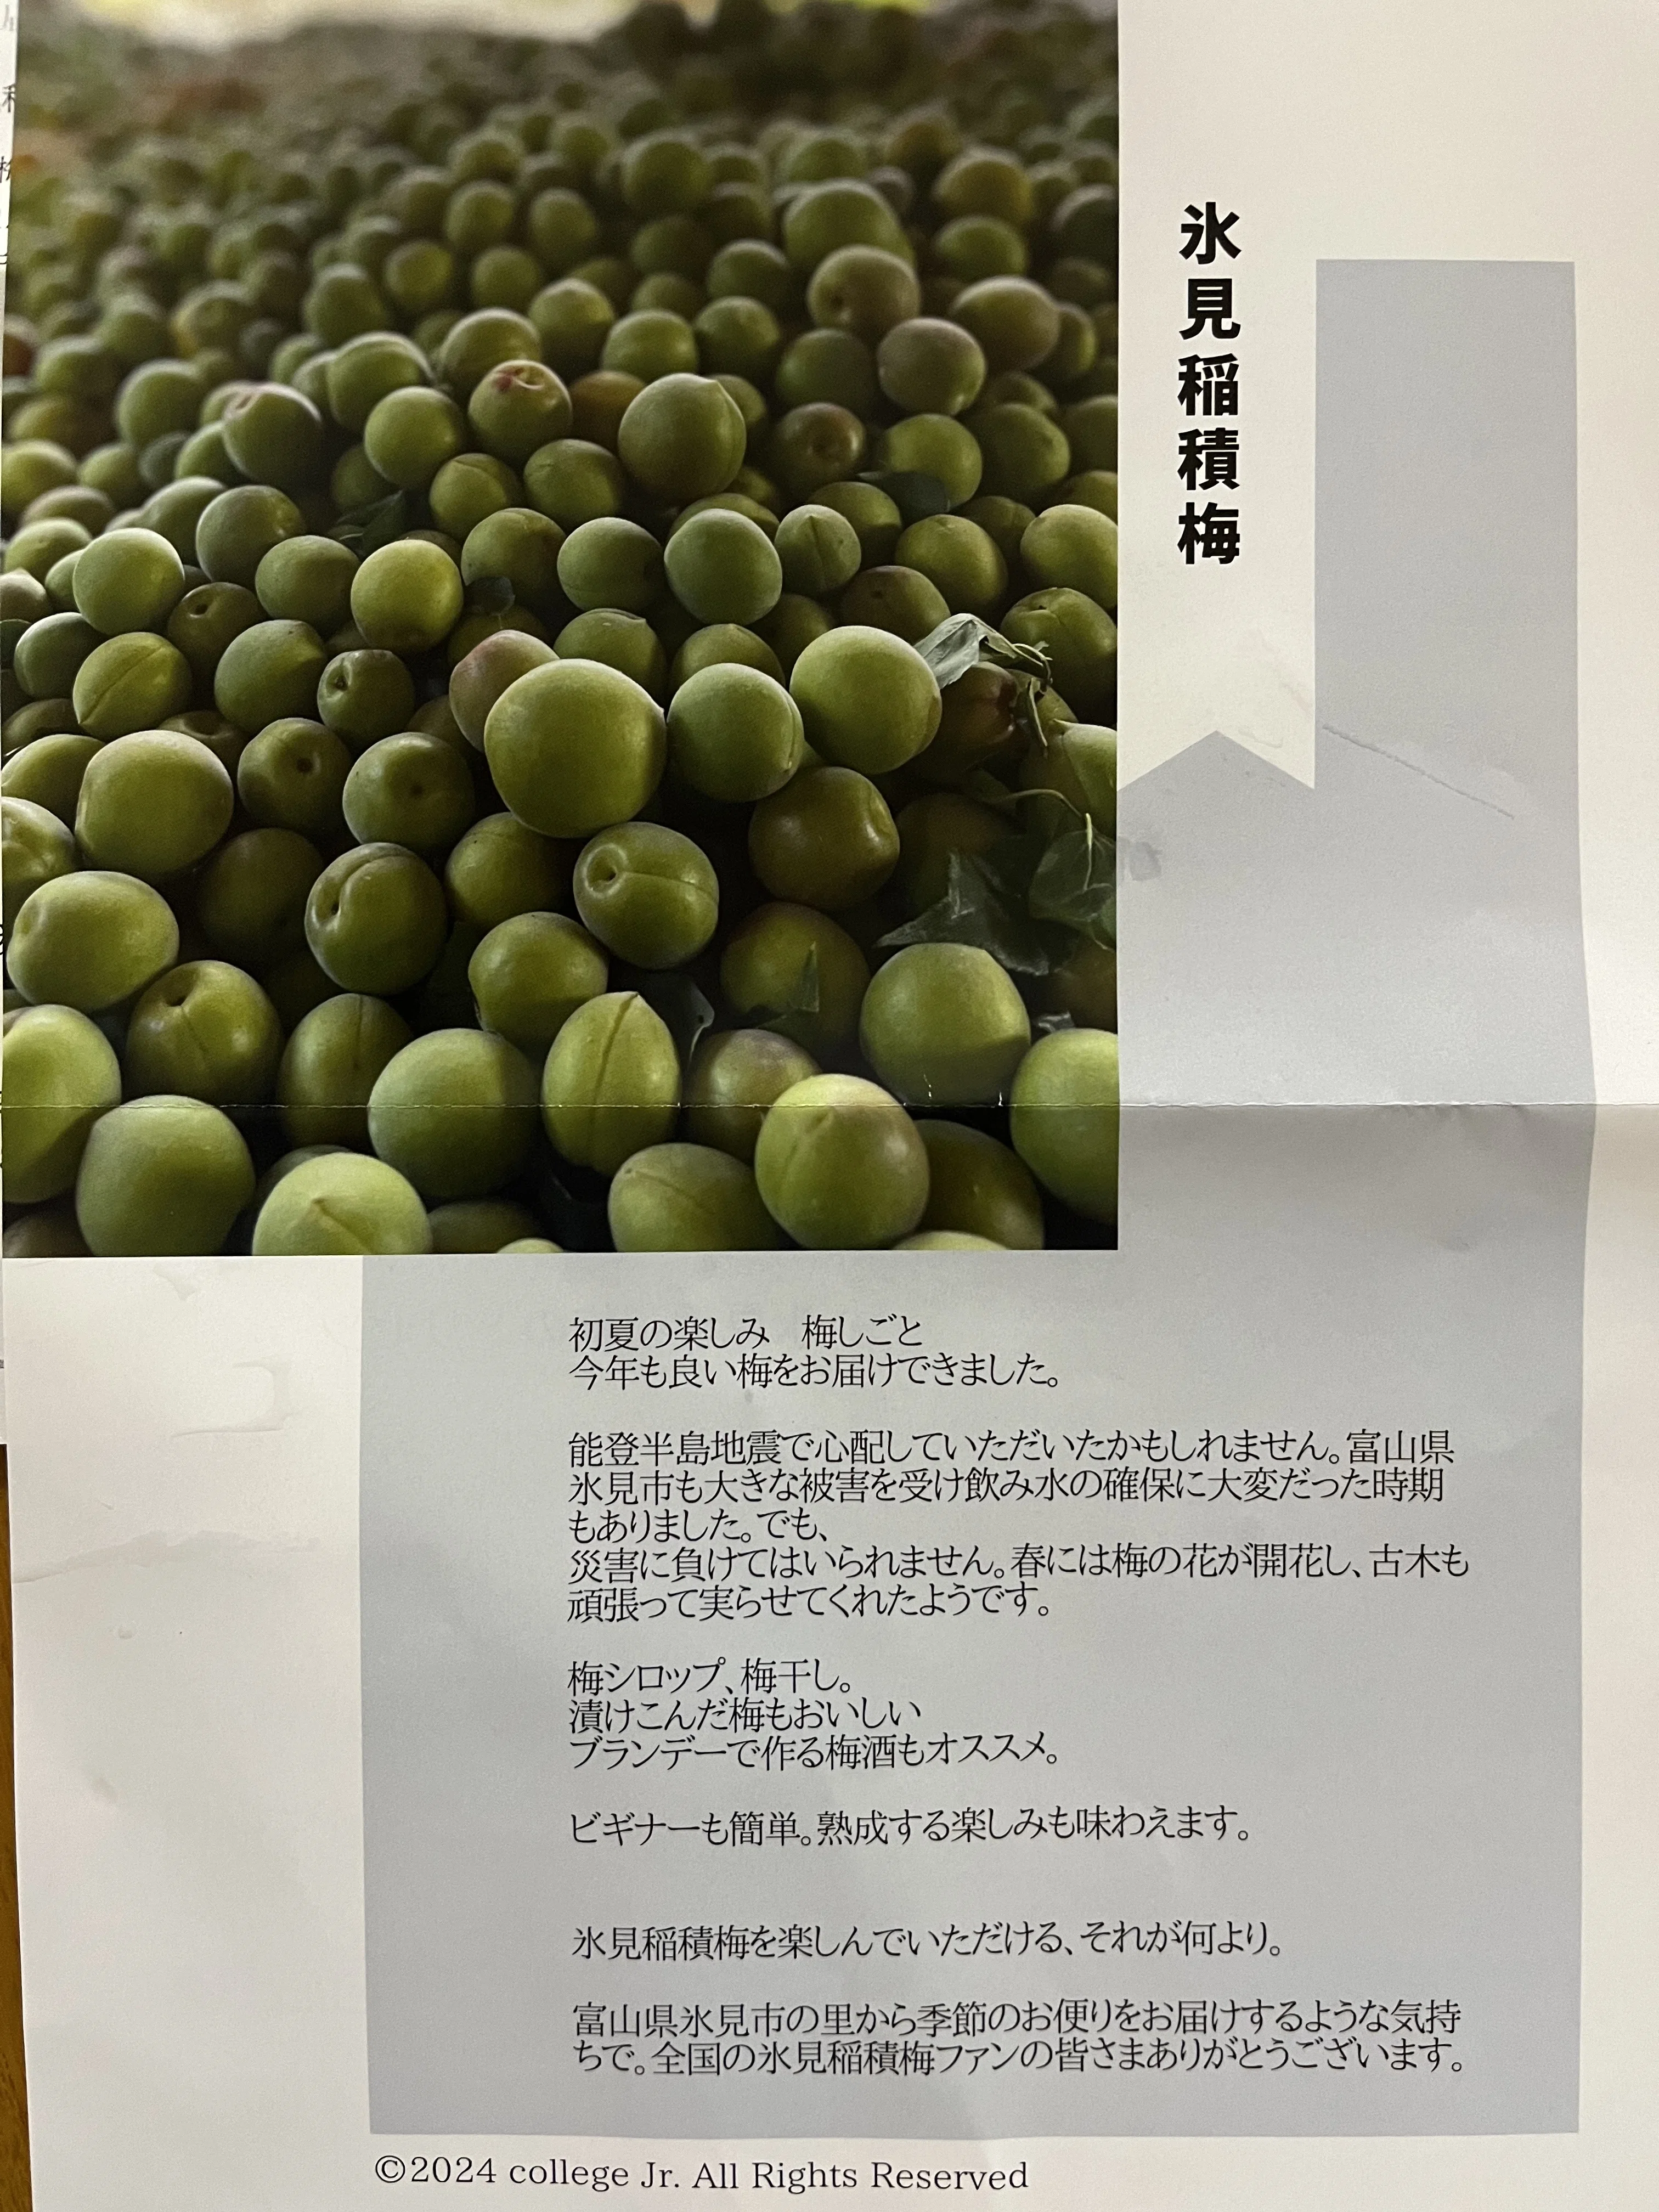 氷見稲積梅
初夏の楽しみ　梅しごと
今年も良い梅をお届けできました。
能登半島地震で心配していただいたかもしれません。富山県
氷見市も大きな被害を受け飲み水の確保に大変だった時期
もありました。でも、
災害に負けてはいられません。春には梅の花が開花し、古木も
頑張って実らせてくれたようです。
梅シロップ、梅干し。
漬けこんだ梅もおいしい
ブランデーで作る梅酒もオススメ。
ビギナーも簡単。熟成する楽しみも味わえます。
氷見稲積梅を楽しんでいただける、それが何より。
富山県氷見市の里から季節のお便りをお届けするような気持
ちで。全国の氷見稲積梅ファンの皆さまありがとうございます。
©2024 college Jr. All Rights Reserved